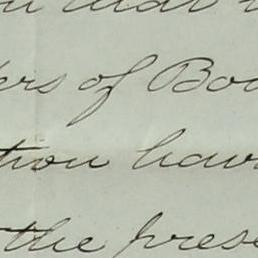 ou that
ers of Boo
tion have
the prese